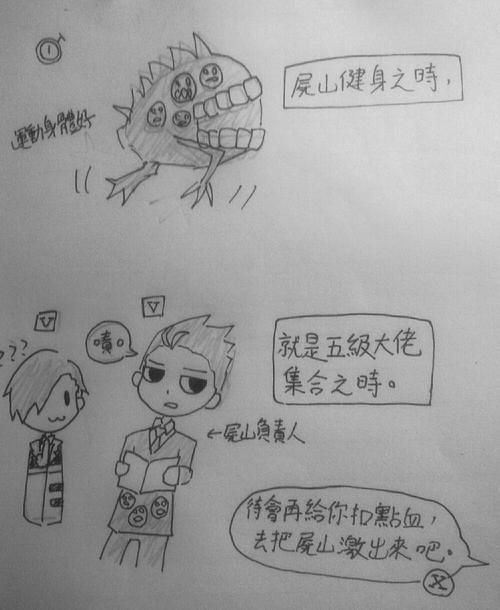 屍山健身之時，
運動身體好
V
V
???
嘖
就是五級大佬
集合之時。
←屍山負責人
待會再給你扣點血，
去把屍山激出來吧。
X